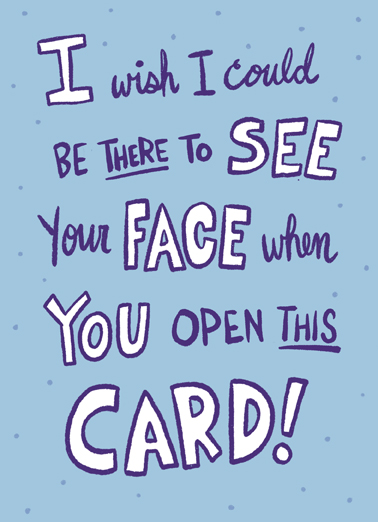 I wish I could
BE THERE TO SEE
Your FACE when
YOU OPEN THIS
CARD!